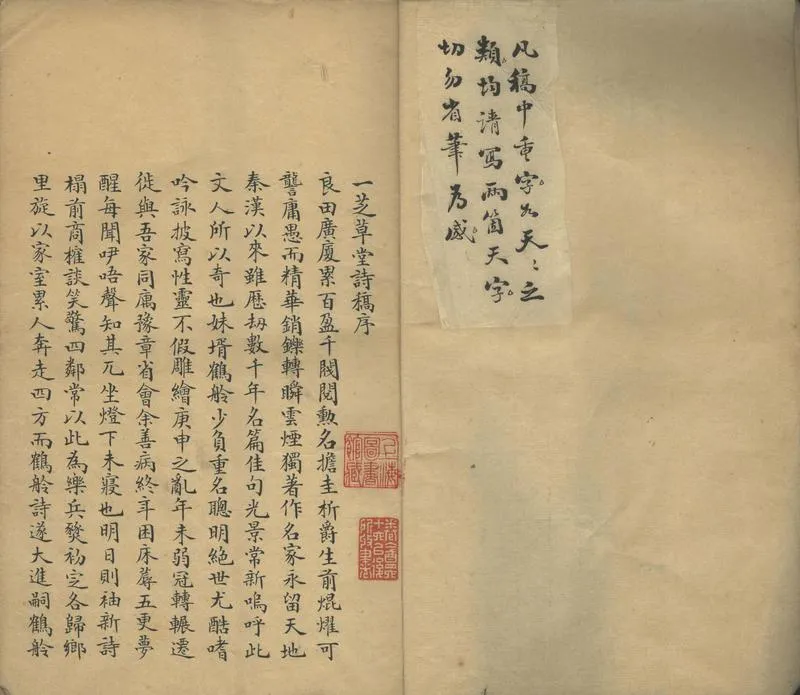 凡稿中重字如天〻之
類均請寫兩箇天字
切勿省筆為感
一芝草堂詩稿序
良田廣廈累百盈千閥閱勲名擔圭析爵生前焜燿可
讋庸愚而精華銷鑠轉瞬雲煙獨著作名家永留天地
秦漢以來雖歷劫數千年名篇佳句光景常新嗚呼此
文人所以奇也妹壻鶴舲少負重名聰明絕世尤酷嗜
吟詠披寫性靈不假雕繪庚申之亂年未弱冠轉輾遷
徙與吾家同寓豫章省會余善病終年困床蓐五更夢
醒每聞咿唔聲知其兀坐燈下未寢也明日則袖新詩
榻前商榷談笑驚四鄰常以此為樂兵燹初定各歸鄉
里旋以家室累人奔走四方而鶴舲詩遂大進嗣鶴舲
上海
圖書
館藏